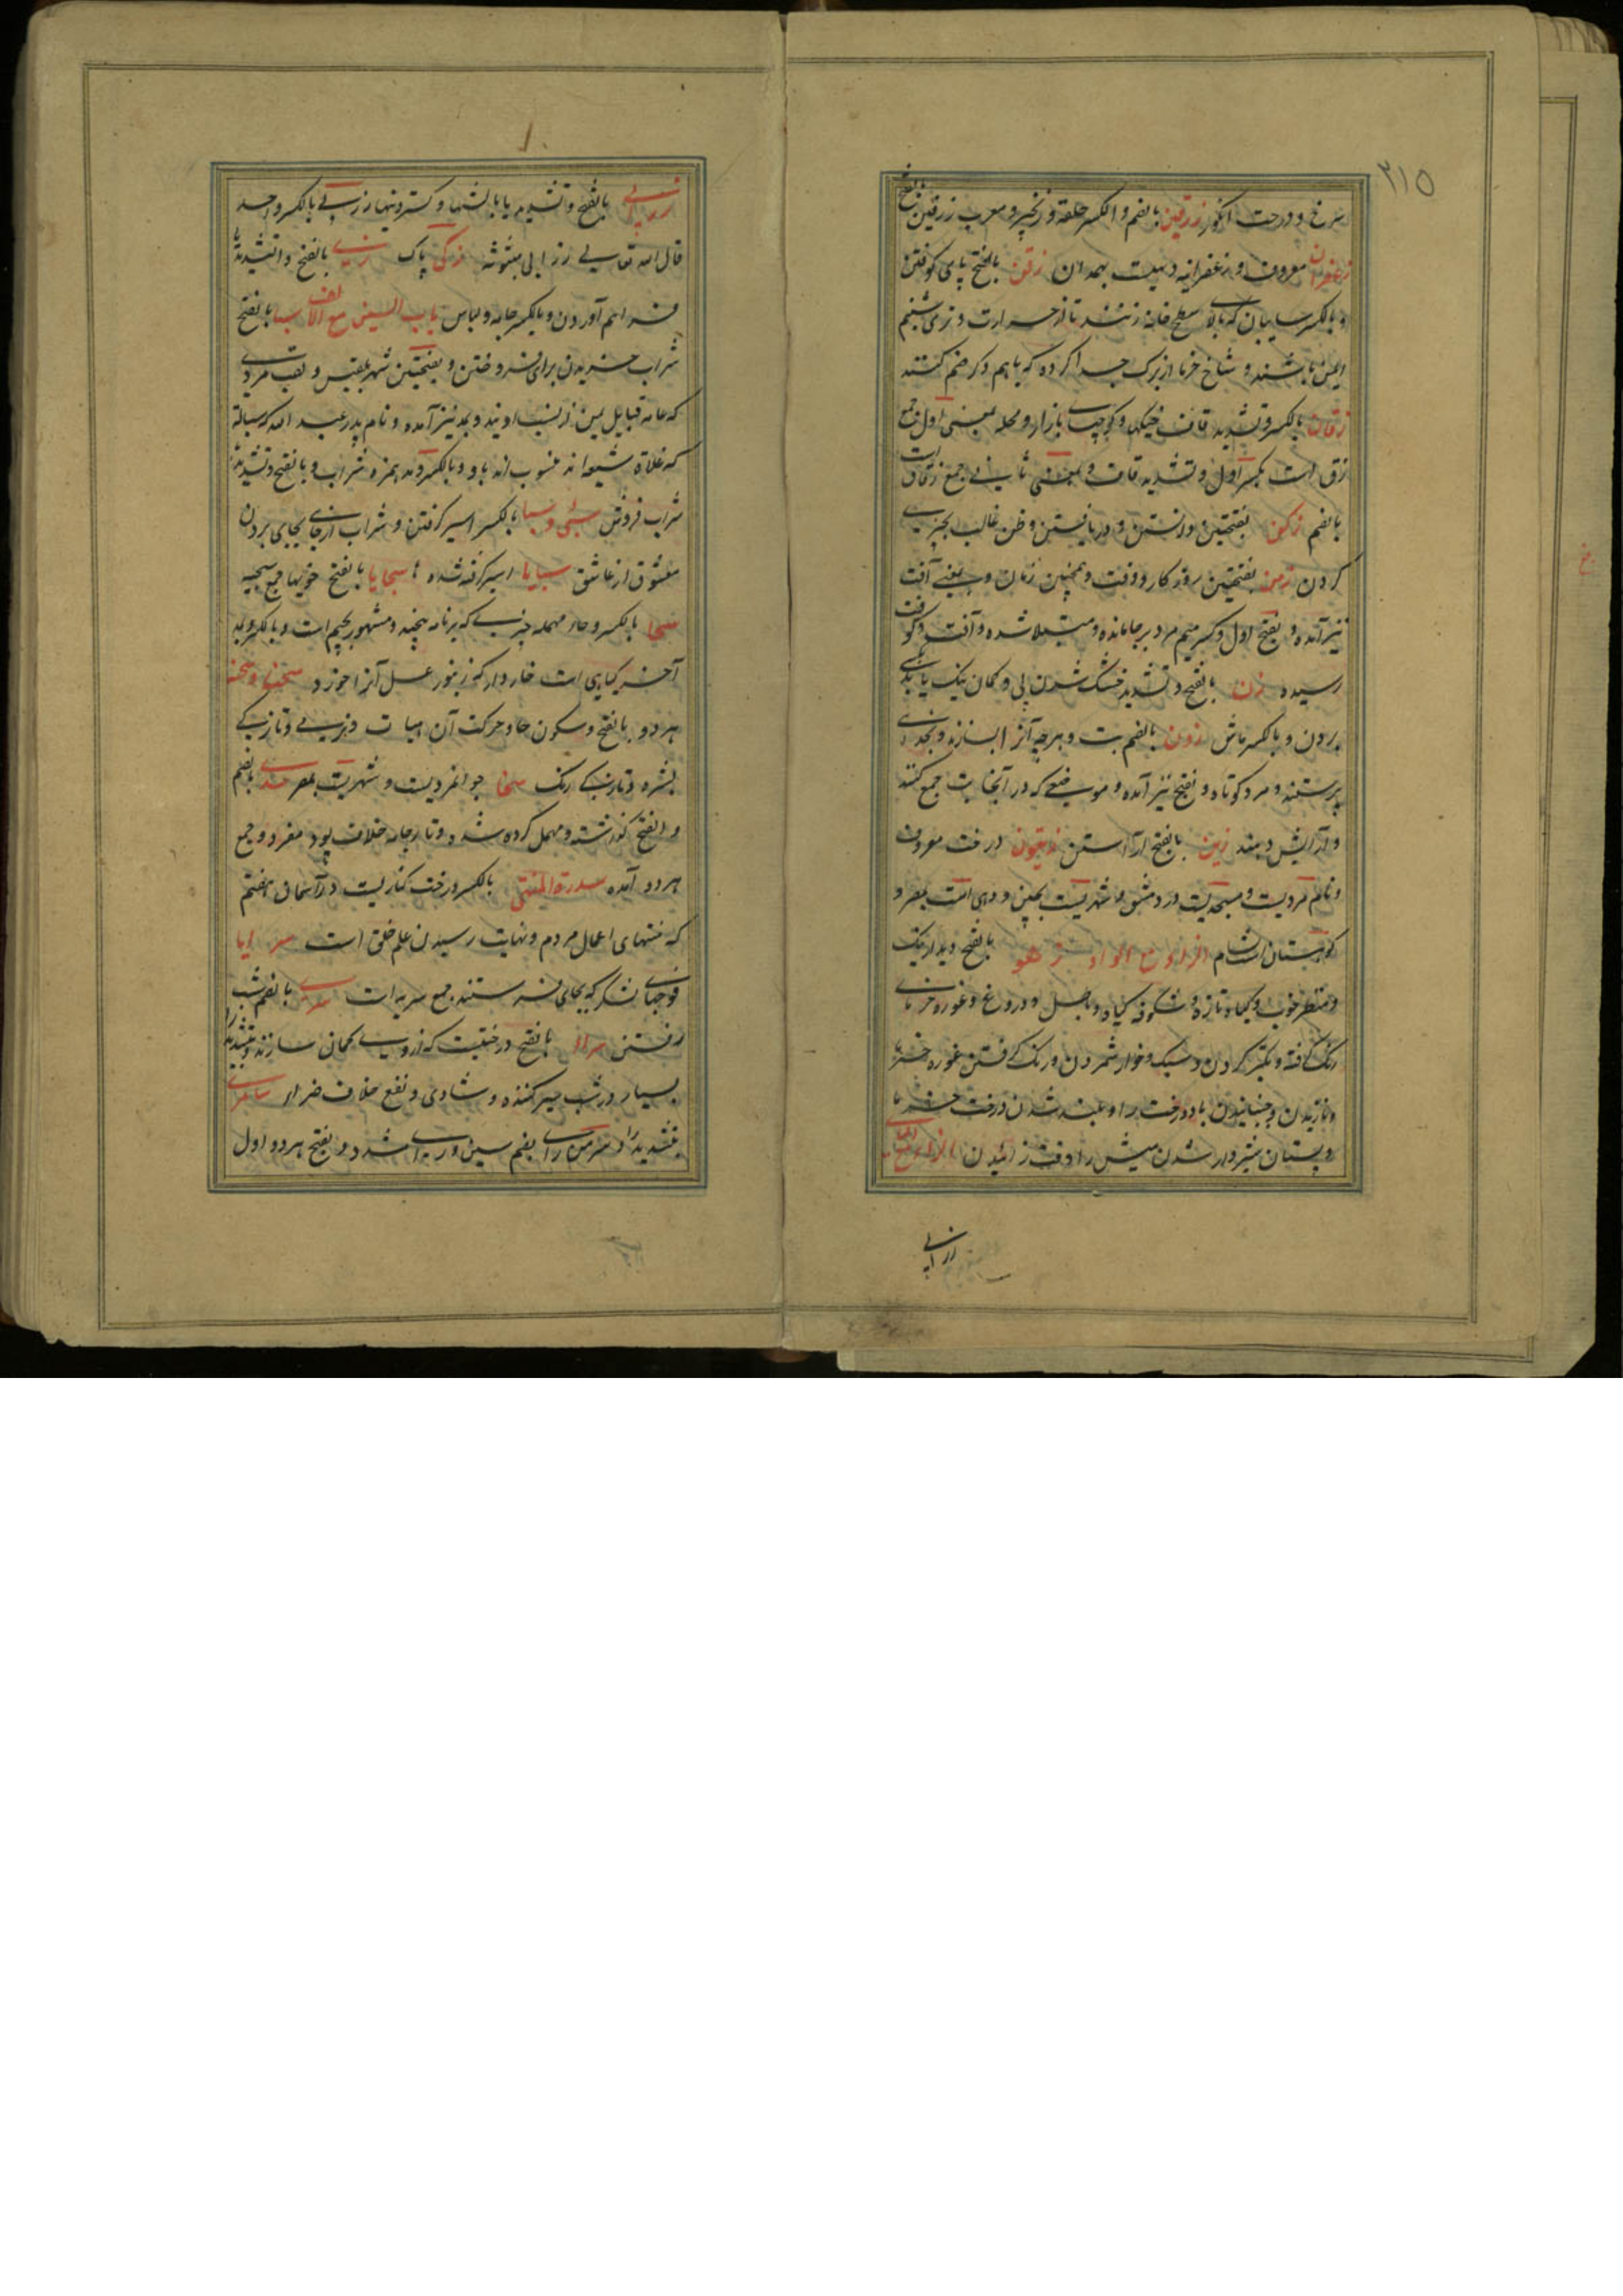 ۳۱۵
سرخ و درخت انگور زرقین بالضم والکسر حلقه و زنجیر و معرب زرفین بالفتح
زعفران معروف و زعفرانیه دهیست بهمدان زفن بالفتح پای کوفتن
و بالکسر سایبان که بالای سطح خانه زنند تا از حرارت و تری شبنم
ایمن باشند و شاخ خرما از برگ جدا کرده که باهم دگر ضم کنند
زقاق بالکسر و تشدید قاف خیکها و کوچهای بازار و محله بمعنی اول جمع
زق است بکسر اول و تشدید قاف و بمعنی ثانی جمع زقاق است
بالضم زکن بفتحتین دانستن و دریافتن و ظن غالب بچیزی
کردن زمن بفتحتین روزکار و وقت و همچنین زمان و بمعنی آفت
نیز آمده و بفتح اول و کسر میم مرد برجا مانده و مبتلا شده و آفت و کوفت
رسیده زن بالفتح و تشدید خشک شدن پی و گمان نیک یا بدی
بردن و بالکسر ماش زون بالضم بت و هرچه آنرا بسازند و بخدای
پرستند و مرد کوتاه و بفتح نیز آمده و موضعی که در آنجا بت جمع کنند
و آرایش دهند زین بالفتح آراستن زیتون درخت معروف
و نام مردیست و مسجدیت در دمشق و شهریست بچین و دهی است بمصر و
کوهستان شام الزاء مع الواو زهو بالفتح دیدار نیک
و منظر خوب و گیاه تازه و شگوفه گیاه و باطل و دروغ و غوره خرمای
رنگ گرفته و تکبر کردن و سبک و خوار شمردن و رنگ گرفتن غوره خرما
و نازیدن و جنبانیدن باد درخت را و بلند شدن درخت خرما
و پستان شیردار شدن میش را وقت زائیدن الزاء مع الیاء
زرابی
زرابی بالفتح و تشدید یا بالشها و گستردنیها زربی بالکسر واحد
قال الله تعالی زرابی مبثوثة زکی پاک زی بالفتح والتشدید یا
فراهم آوردن و بالکسر جامه و لباس باب السین مع الالف سبا بالفتح
شراب خریدن برای فروختن و بفتحتین شهر بلقیس و لقب مردی
که عامه قبایل یمن از نسب اویند و بمد نیز آمده و نام پدر عبد الله که سبائیه
که غلاة شیعه اند منسوب اند باو و بالکسر و مد همزه شراب و بالفتح و تشدید
شراب فروش سبی و سبا بالکسر اسیر گرفتن و شراب از جای بجای بردن
معشوق از عاشق سبایا اسیر گرفته شده سجایا بالفتح خویها جمع سجیه
سحا بالکسر و حاء مهمله چیزی که بر نامه پیچند و مشهور بجیم است و بالکسر و مد
آخر گیاهی است خاردار که زنبور عسل آنرا خورد سحنا و سحنه
هر دو بالفتح و سکون حا و حرکت آن هیأت و فربهی و تازگی
بشره و تازگی رنگ سخا جوانمردیست و شهریست بمصر سدی بالضم
و الفتح گذشته و مهمل کرده شده و تار جامه خلاف پود مفرد و جمع
هر دو آمده سدرة المنتهی بالکسر درخت کناریست در آسمان هفتم
که منتهای اعمال مردم و نهایت رسیدن علم خلق است سرایا
فوجهای لشکر که بجای فرستند جمع سریه است سری بالضم شب
رفتن سراء بالفتح درختیست که از وی کمان سازند و بتشدید را
بسیار در شب سیر کننده و شادی و نفع خلاف ضراء سامری
بتشدید را و سر من رای بضم سین و رای مشدد و بفتح هر دو اول